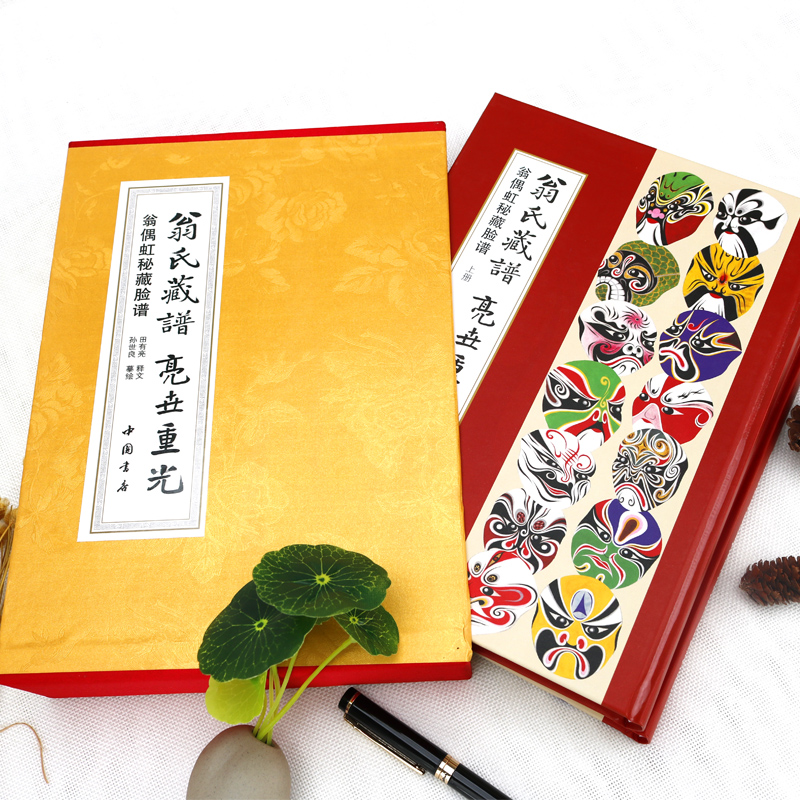 翁氏藏譜 亮世重光
翁偶虹秘藏脸谱
田有亮 释文
孙世良 摹绘
中国书店
翁氏藏譜 亮世重
翁偶虹秘藏脸谱
上册